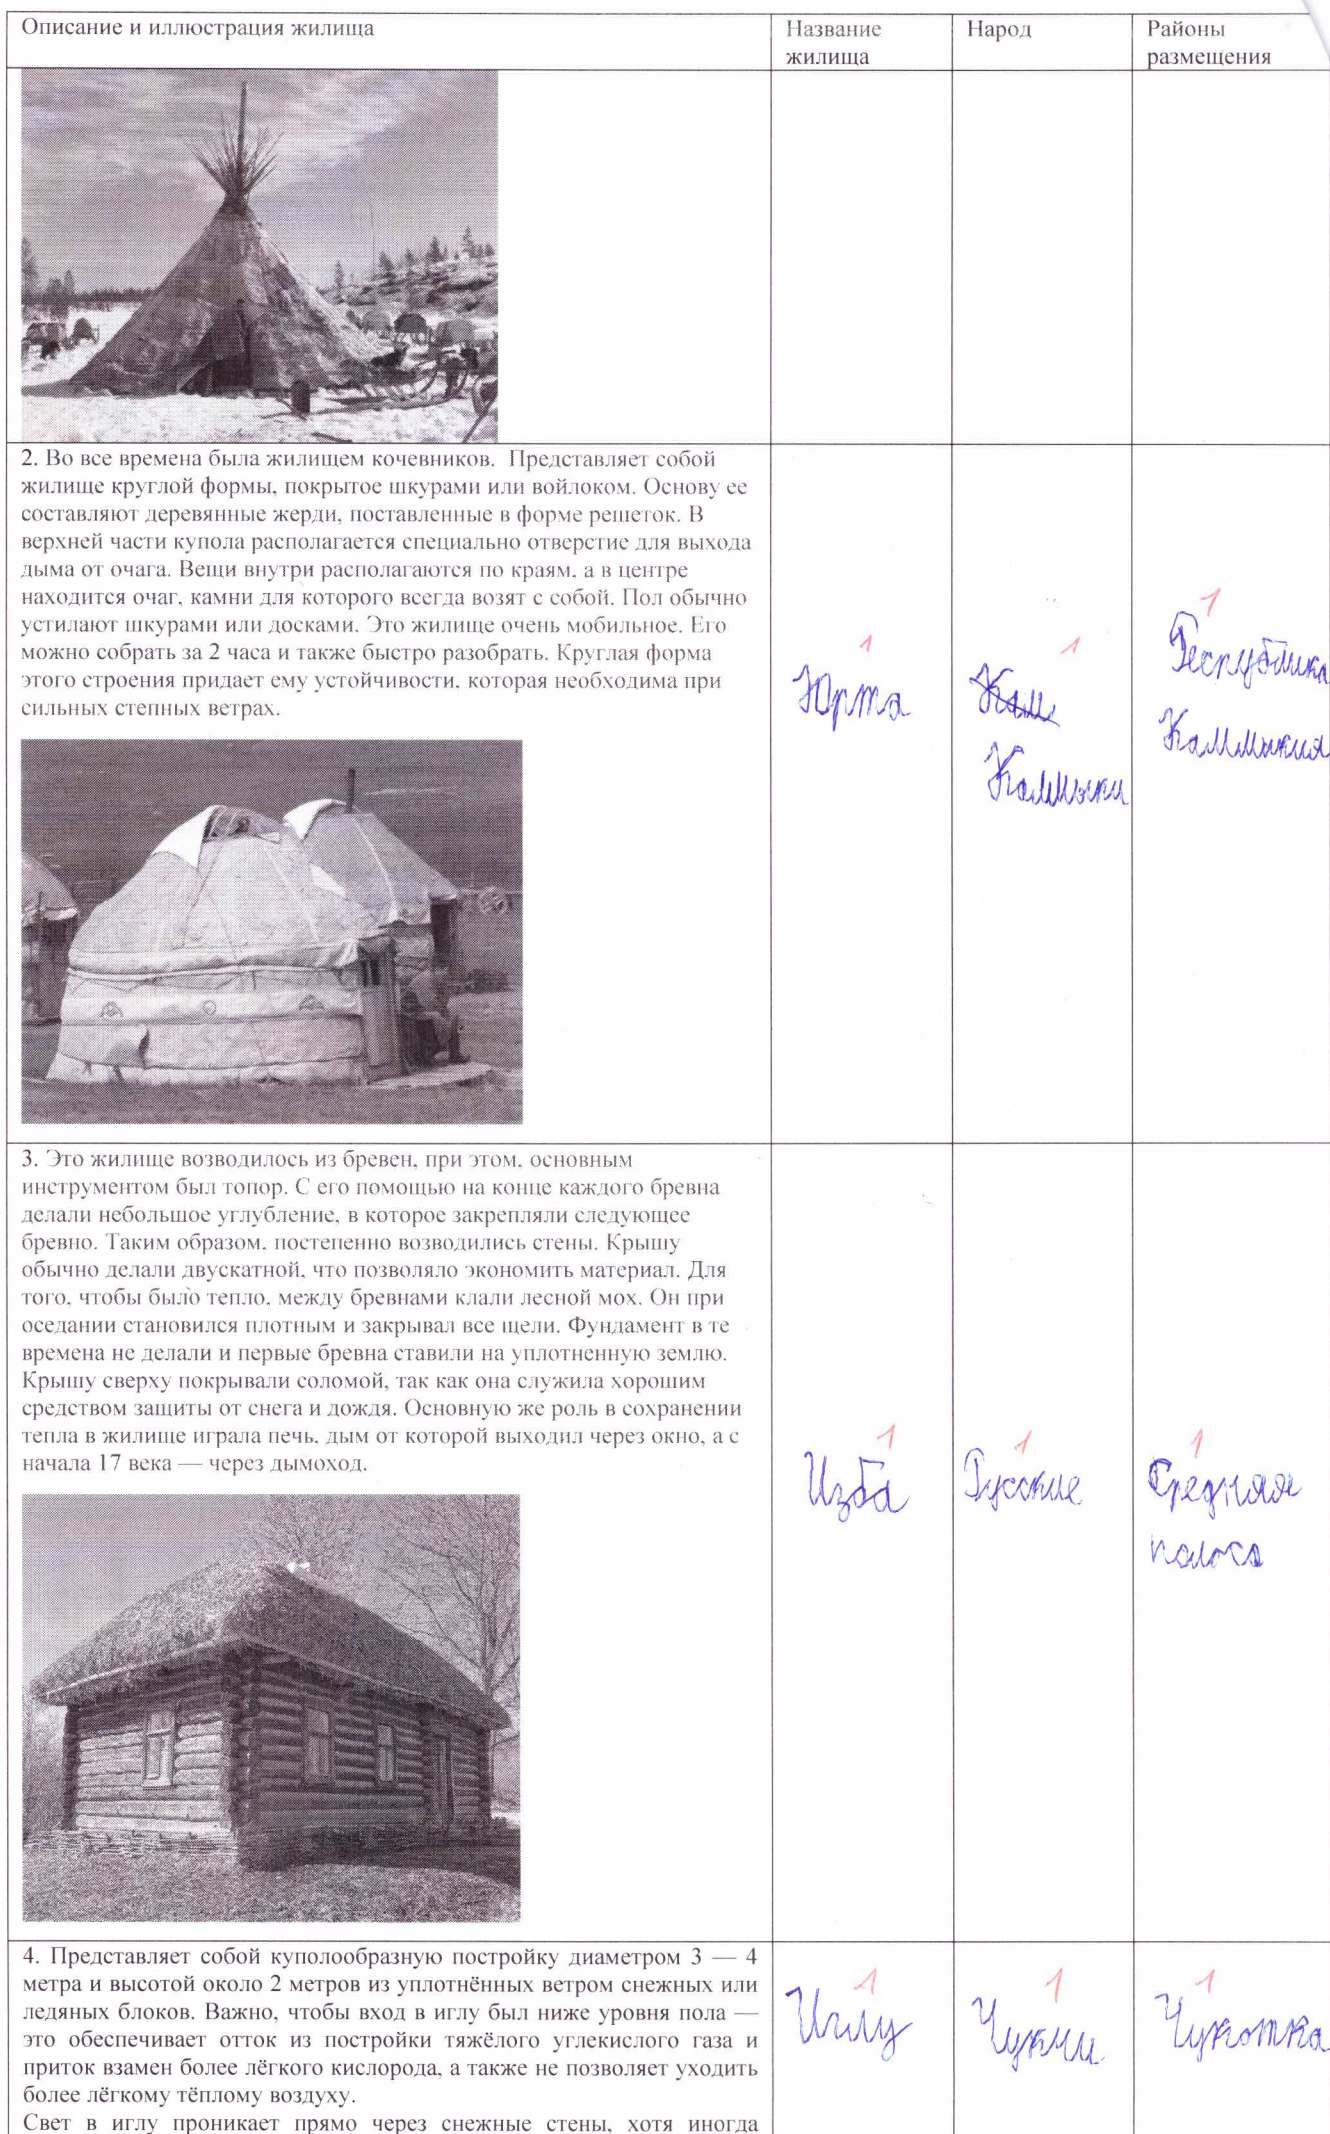 Описание и иллюстрация жилища
Название
жилища
Народ
Районы
размещения
2. Во все времена была жилищем кочевников. Представляет собой
жилище круглой формы, покрытое шкурами или войлоком. Основу ее
составляют деревянные жерди, поставленные в форме решеток. В
верхней части купола располагается специально отверстие для выхода
дыма от очага. Вещи внутри располагаются по краям, а в центре
находится очаг, камни для которого всегда возят с собой. Пол обычно
устилают шкурами или досками. Это жилище очень мобильное. Его
можно собрать за 2 часа и также быстро разобрать. Круглая форма
этого строения придает ему устойчивости, которая необходима при
сильных степных ветрах.
1
Юрта
1
Калм
Калмыки
1
Республика
Калмыкия
3. Это жилище возводилось из бревен, при этом, основным
инструментом был топор. С его помощью на конце каждого бревна
делали небольшое углубление, в которое закрепляли следующее
бревно. Таким образом, постепенно возводились стены. Крышу
обычно делали двускатной, что позволяло экономить материал. Для
того, чтобы было тепло, между бревнами клали лесной мох. Он при
оседании становился плотным и закрывал все щели. Фундамент в те
времена не делали и первые бревна ставили на уплотненную землю.
Крышу сверху покрывали соломой, так как она служила хорошим
средством защиты от снега и дождя. Основную же роль в сохранении
тепла в жилище играла печь, дым от которой выходил через окно, а с
начала 17 века — через дымоход.
1
Изба
1
Русские
1
Средняя
полоса
4. Представляет собой куполообразную постройку диаметром 3 — 4
метра и высотой около 2 метров из уплотнённых ветром снежных или
ледяных блоков. Важно, чтобы вход в иглу был ниже уровня пола —
это обеспечивает отток из постройки тяжёлого углекислого газа и
приток взамен более лёгкого кислорода, а также не позволяет уходить
более лёгкому тёплому воздуху.
Свет в иглу проникает прямо через снежные стены, хотя иногда
1
Иглу
1
Чукчи
1
Чукотка